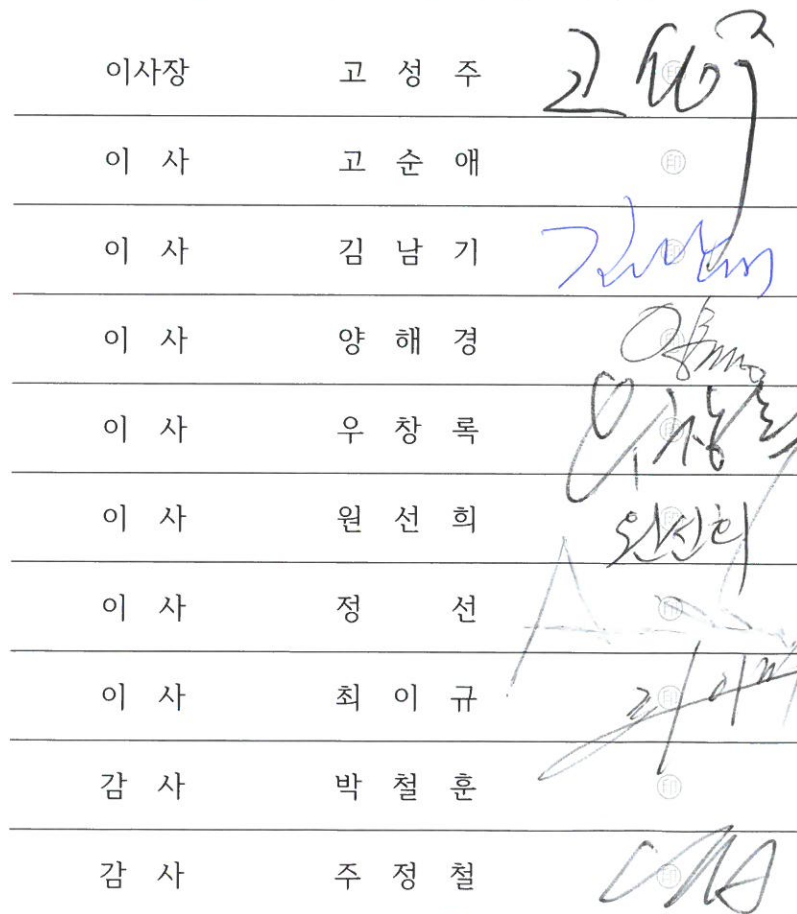 이사장 고 성 주 고성주 ㊞
이 사 고 순 애 ㊞
이 사 김 남 기 ㊞
이 사 양 해 경 ㊞
이 사 우 창 록 우창록 ㊞
이 사 원 선 희 원선희 ㊞
이 사 정 선 ㊞
이 사 최 이 규 ㊞
감 사 박 철 훈 ㊞
감 사 주 정 철 ㊞